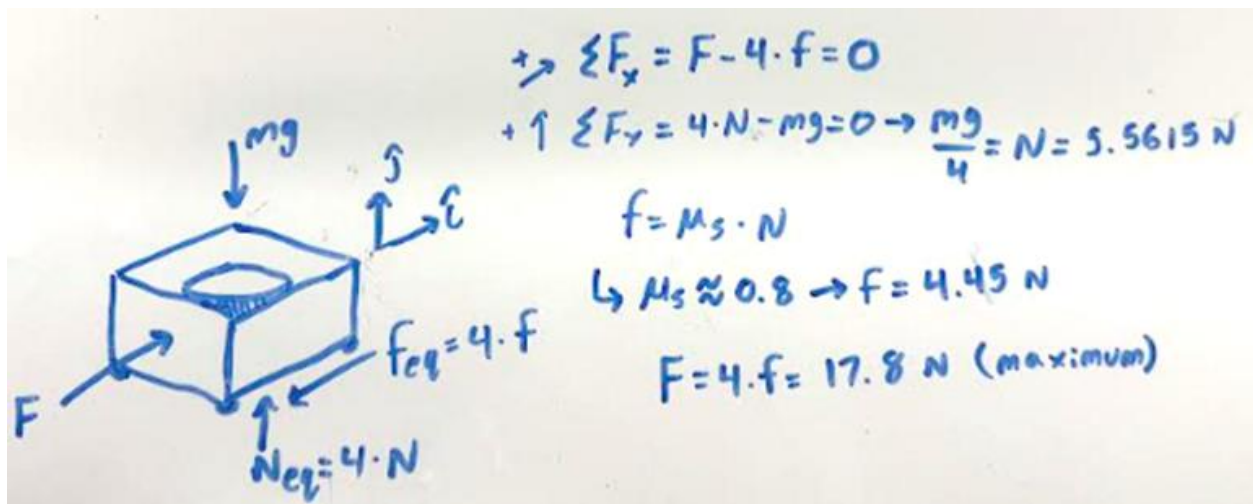 +↗ ΣFₓ = F - 4·f = 0
+↑ ΣFᵧ = 4·N - mg = 0 → mg/4 = N = 5.5615 N
f = μₛ · N
↳ μₛ ≈ 0.8 → f = 4.45 N
F = 4·f = 17.8 N (maximum)
mg
ĵ
î
f_eq = 4·f
F
N_eq = 4·N